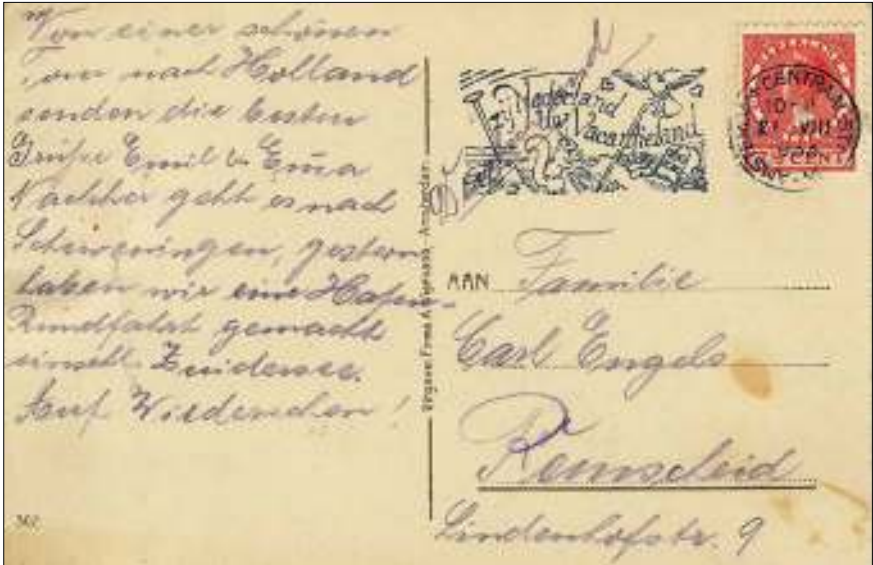 Von einer schönen
Tour nach Holland
senden die besten
Grüße Emil u. Erna
Nachher geht es nach
Scheveningen, gestern
haben wir eine Hafen-
Rundfahrt gemacht
einschl. Zuidersee.
Auf Wiedersehen!
302
Uitgave Firma A. Amsterdam
Nederland
Uw Vacantieland
CENTRAAL
10
21 VIII
CENT
AAN Familie
Carl Engels
Remscheid
Lindenhofstr. 9